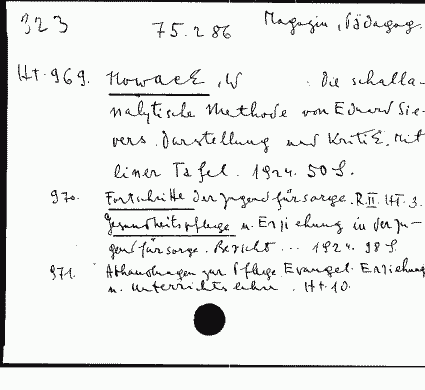 323 75.286 Magazin, Pädagog.
Ht. 969. Nowack, W. Die schalla-
nalytische Methode von Eduard Sie-
vers. Darstellung und Kritik. Mit
einer Tafel. 1924. 50 S.
970. Fortschritte der Jugendfürsorge. R. II. Ht. 3.
Gesundheitspflege u. Erziehung in der Ju-
gendfürsorge. Bericht ... 1924. 98 S
971. Abhandlungen zur Pflege Evangel. Erziehung
u. Unterrichtslehre. Ht. 10.